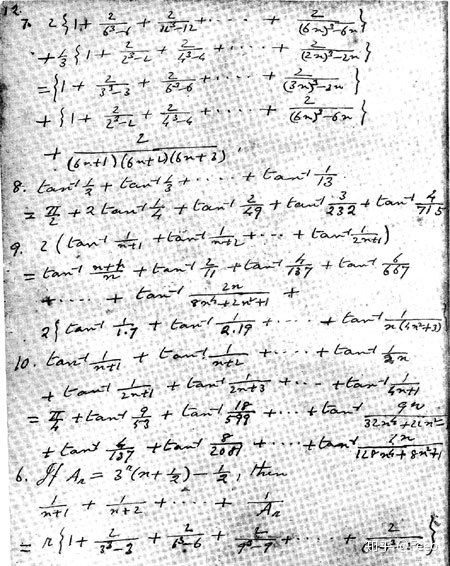 12
7. 2{1 + 2/(6³-6) + 2/(12³-12) + ..... + 2/((6n)³-6n)}
+ 1/3 {1 + 2/(2³-2) + 2/(4³-4) + ..... + 2/((2n)³-2n)}
= {1 + 2/(3³-3) + 2/(6³-6) + ..... + 2/((3n)³-3n)}
+ {1 + 2/(2³-2) + 2/(4³-4) + ..... + 2/((6n)³-6n)}
+ 2/((6n+1)(6n+2)(6n+3)) .
8. tan⁻¹ 1/2 + tan⁻¹ 1/3 + ..... + tan⁻¹ 1/13
= π/2 + 2 tan⁻¹ 1/4 + tan⁻¹ 2/49 + tan⁻¹ 3/232 + tan⁻¹ 4/715
9. 2 (tan⁻¹ 1/(n+1) + tan⁻¹ 1/(n+2) + ... + tan⁻¹ 1/(2n+1))
= tan⁻¹ /n + tan⁻¹ 2/11 + tan⁻¹ 4/137 + tan⁻¹ 6/667
+ ..... + tan⁻¹ 2n/(8n⁴+2n²+1) +
2{tan⁻¹ 1/1.7 + tan⁻¹ 1/2.19 + ..... + tan⁻¹ 1/(n(4n²+3))
10. tan⁻¹ 1/(n+1) + tan⁻¹ 1/(n+2) + ..... + tan⁻¹ 1/2n
+ tan⁻¹ 1/(2n+1) + tan⁻¹ 1/(2n+3) + ... + tan⁻¹ 1/(4n+1)
= π/4 + tan⁻¹ 9/53 + tan⁻¹ 18/599 + ... + tan⁻¹ 9n/(32n⁴+22n²-
+ tan⁻¹ 4/137 + tan⁻¹ 8/2081 + ..... + tan⁻¹ /(128n⁴+8n²+1)
6. If Aᵣ = 3ʳ(n+1/2) - 1/2, then
1/(n+1) + 1/(n+2) + ..... + 1/Aᵣ
= r{1 + 2/(3³-3) + 2/(6³-6) + 2/(9³-9) + ..... + 2/ }